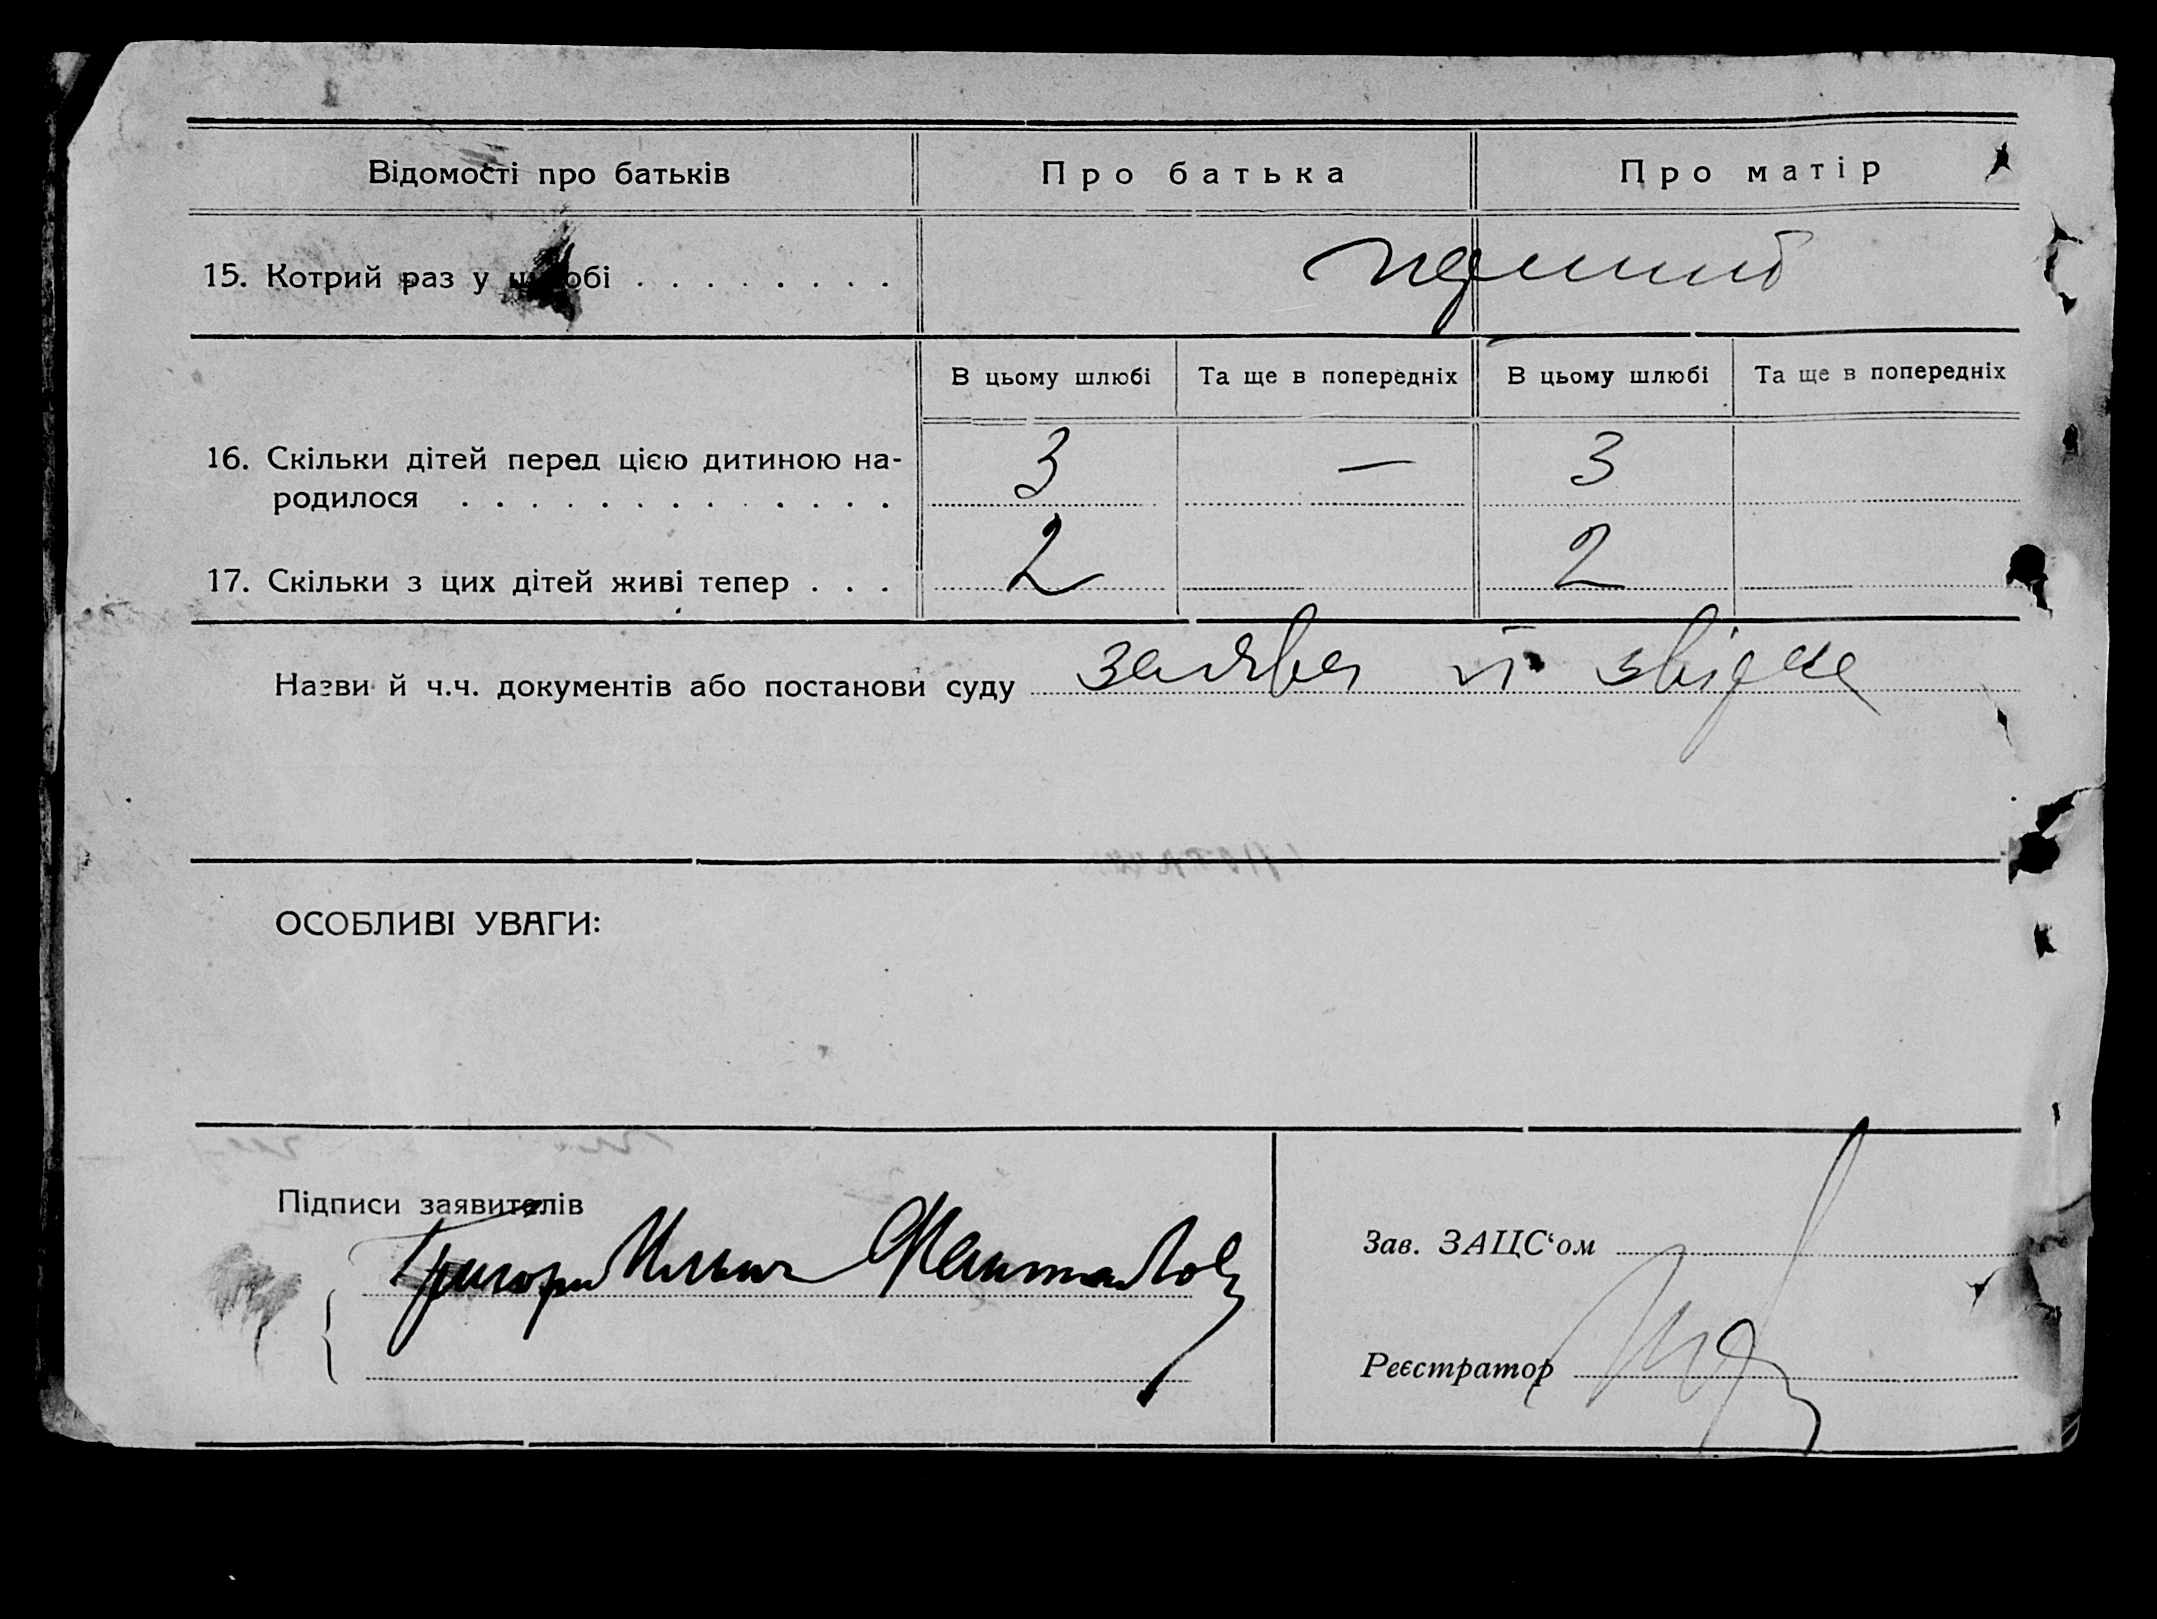 Відомості про батьків Про батька Про матір
15. Котрий раз у шлюбі . . . . . . . .
В цьому шлюбі Та ще в попередніх В цьому шлюбі Та ще в попередніх
16. Скільки дітей перед цією дитиною на-
родилося . . . . . . . . . . . . . 3 — 3
17. Скільки з цих дітей живі тепер . . . 2 2
Назви й ч.ч. документів або постанови суду заява
ОСОБЛИВІ УВАГИ:
Підписи заявителів
Григори Ильич
Зав. ЗАЦС‘ом
Реєстратор